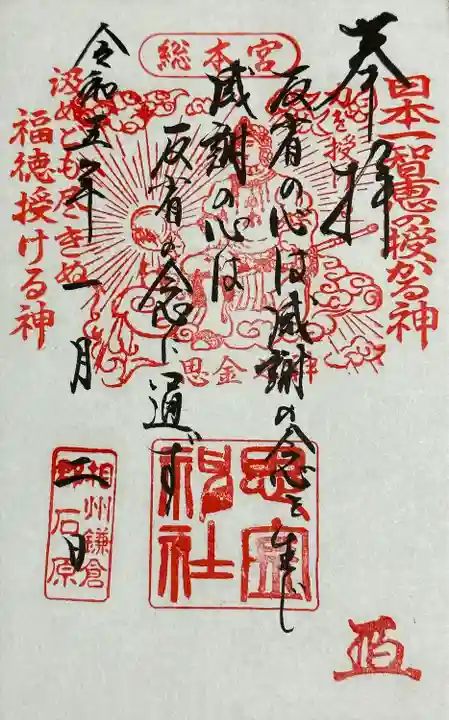 総本宮
奉拝
日本一智恵の授かる神
力を授け
反省の心は感謝の念を生じ
感謝の心は
反省の念に通ず
汲めどもつきぬ
福徳授ける神
令和五年一月二日
思金大神
思金神社
相州鎌倉
石原